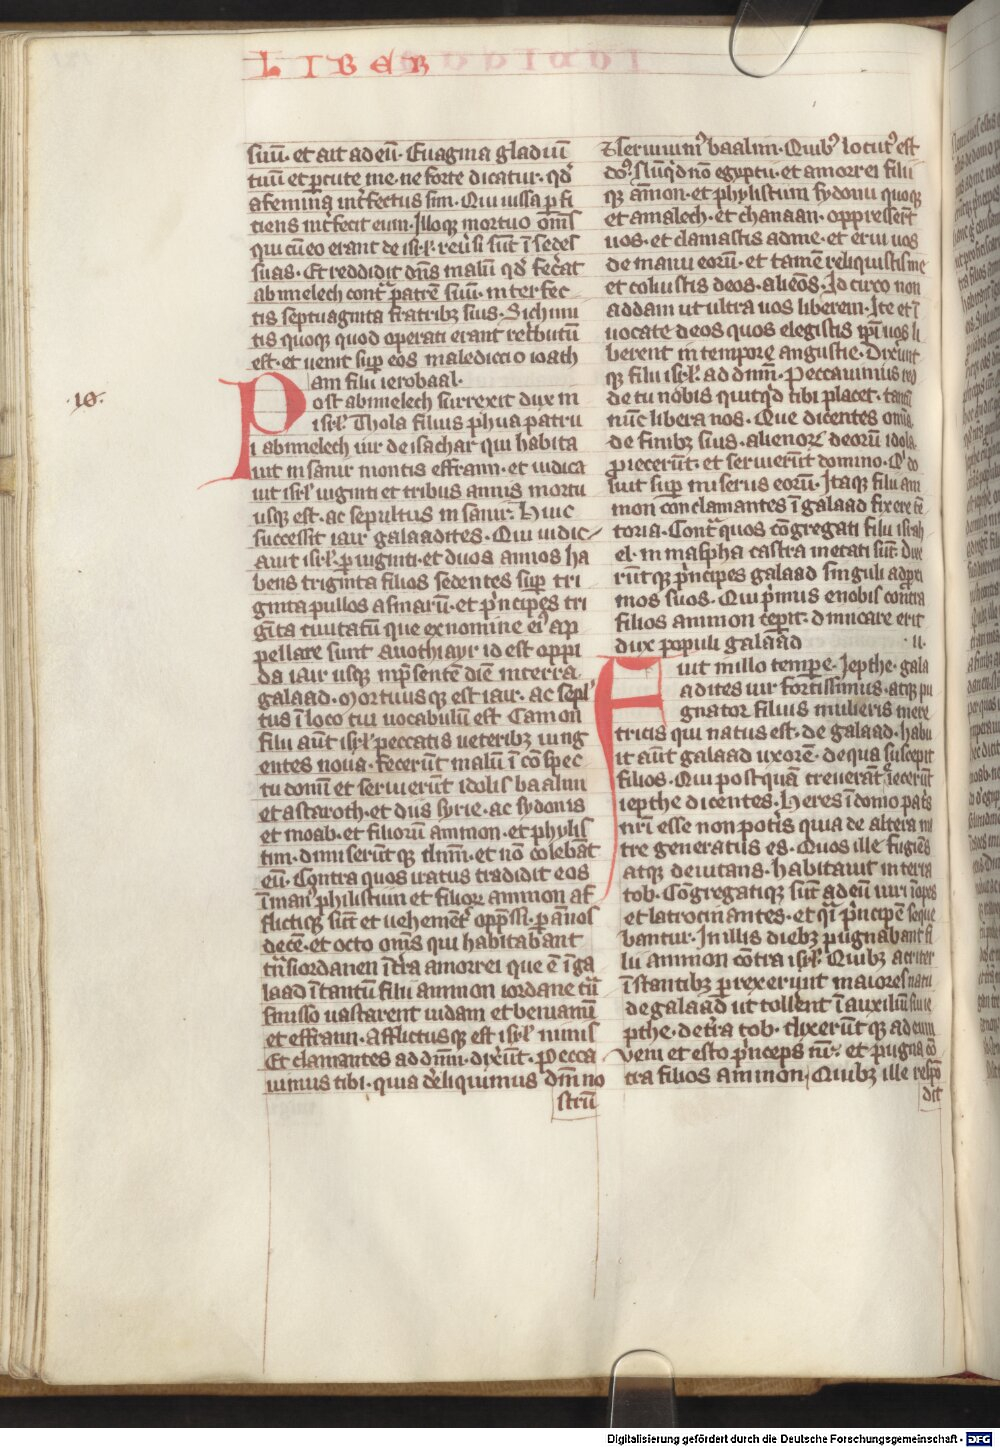 LIBER
suū· et ait ad eū· Euagina gladiū
tuū et ꝑcute me· ne forte dicatur· qd̓
a femina int̓fectus sim· Qui iussa ꝑfi
tiens int̓fecit eum· Illoqꝫ mortuo om̄s
qui cū eo erant de isrl̓· reu̓si sūt ī sedes
suas· Et reddidit dn̄s malū qd̓ fec̓at
abimelech cont̓ patrē suū· interfec
tis septuaginta fratribꝫ suis· Sichimi
tis quoqꝫ quod operati erant ret̓butū
est· et uenit suꝑ eos malediccio ioath
am filii ierobaal·
·10·
Post abimelech surrexit dux in
isrl̓· Thola filius phua patru
i abimelech uir de isachar qui habita
uit in sanir montis effraim· et iudica
uit isrl̓ uiginti et tribus annis mortu
usqꝫ est· ac sepultus in sanir· Huic
successit iair galaadites· Qui iudic
auit isrl̓· ꝑ uiginti· et duos annos ha
bens triginta filios sedentes suꝑ tri
ginta pullos asinarū· et p̓ncipes tri
gīta ciuitatū que ex nomine ei᷒ ap
pellate sunt auothiayr id est oppi
da iair usqꝫ inp̄sentē diē in terra
galaad· Mortuusqꝫ est iair· ac sepl̓
tus ī loco cui uocabulū est Camon
filii aūt isrl̓ peccatis ueteribꝫ iung
entes noua· fecerūt malū ī cōspec
tu domī et seruierūt idolis baalim
et astaroth· et diis syrie· ac sydonis
et moab· et filiorū ammon· et phylis
tim· dimiserūtqꝫ dn̄m· et nō colebāt
eū· Contra quos iratus tradidit eos
ī man᷒ philistiim et filioꝝ ammon af
flictiqꝫ sūt et uehement̓ opp̄ssi· ꝑ ānos
decē· et octo om̄s qui habitabant
trās iordanen ī t̓ra amorrei que ē ī ga
laad ītantū filii ammon iordane trā
smisso uastarent iudam et beniamī
et effraim· Afflictusqꝫ est isrl̓ nimis
Et clamantes ad dn̄m· dix̓ūt· Pecca
uimus tibi· quia d̓eliquimus dn̄m no
strū
⁊ seruiuim᷒ baalim· Quib᷒ locut᷒ est
do᷒· Nūqd̓ nō egyptii· et amorrei filii
qꝫ āmon· et phylistiim sydonii quoqꝫ
et amalech· et chanaan· oppresserūt
uos· et clamastis ad me· et erui uos
de manu eorū· et tamē reliquistis me
et coluistis deos· alienos· Id circo non
addam ut ultra uos liberem· Ite et ī
uocate deos quos elegistis ip̄i uos li
berent in tempore angustie· Dix̓unt
qꝫ filii isrl̓· ad dn̄m· Peccauimus red
de tu nobis quitqd̓ tibi placet· tantū
nūc libera nos· Que dicentes omīa
de finibꝫ suis· alienoꝝ deorū idola
ꝓiecerūt· et seruierūt domino· Q̓ do
luit suꝑ miseriis eorū· Itaqꝫ filii am
mon conclamantes ī galaad fixere tē
toria· Cont̓ quos cōgregati filii israh
el· in maspha castra metati sūt· dixe
rūtqꝫ p̓ncipes galaad singuli ad ꝓxi
mos suos· Qui p̓mus e nobis contra
filios ammon ceperit· dimicare erit
dux populi galaad
·11·
Fuit in illo tempe· Iepthe· gala
adites uir fortissimus· atqꝫ pu
gnator filius mulieris mere
tricis qui natus est· de galaad· habu
it aūt galaad uxorē· de qua suscepit
filios· Qui postquā creuerāt eiecerūt
iepthe dicentes· Heres ī domo pat̓s
nr̄i esse non pot̓is quia de altera ma
tre generatus es· Quos ille fugiēs
atqꝫ deuitans· habitauit in terra
tob· Cōgregatiqꝫ sūt ad eū uiri īopes
et latrocinantes· et q̓i p̓ncipē seque
bantur· In illis diebꝫ pugnabant fi
lii ammon cōtra isrl̓· Quibꝫ acriter
īstantibꝫ ꝑrexerunt maiores natu
de galaad ut tollent ī auxiliū sui ie
pthe· de t̓ra tob· dixerūtqꝫ ad eum
Veni et esto p̓nceps nr̄· et pugna cō
tra filios ammon· Quibꝫ ille respō
dit
Digitalisierung gefördert durch die Deutsche Forschungsgemeinschaft - DFG